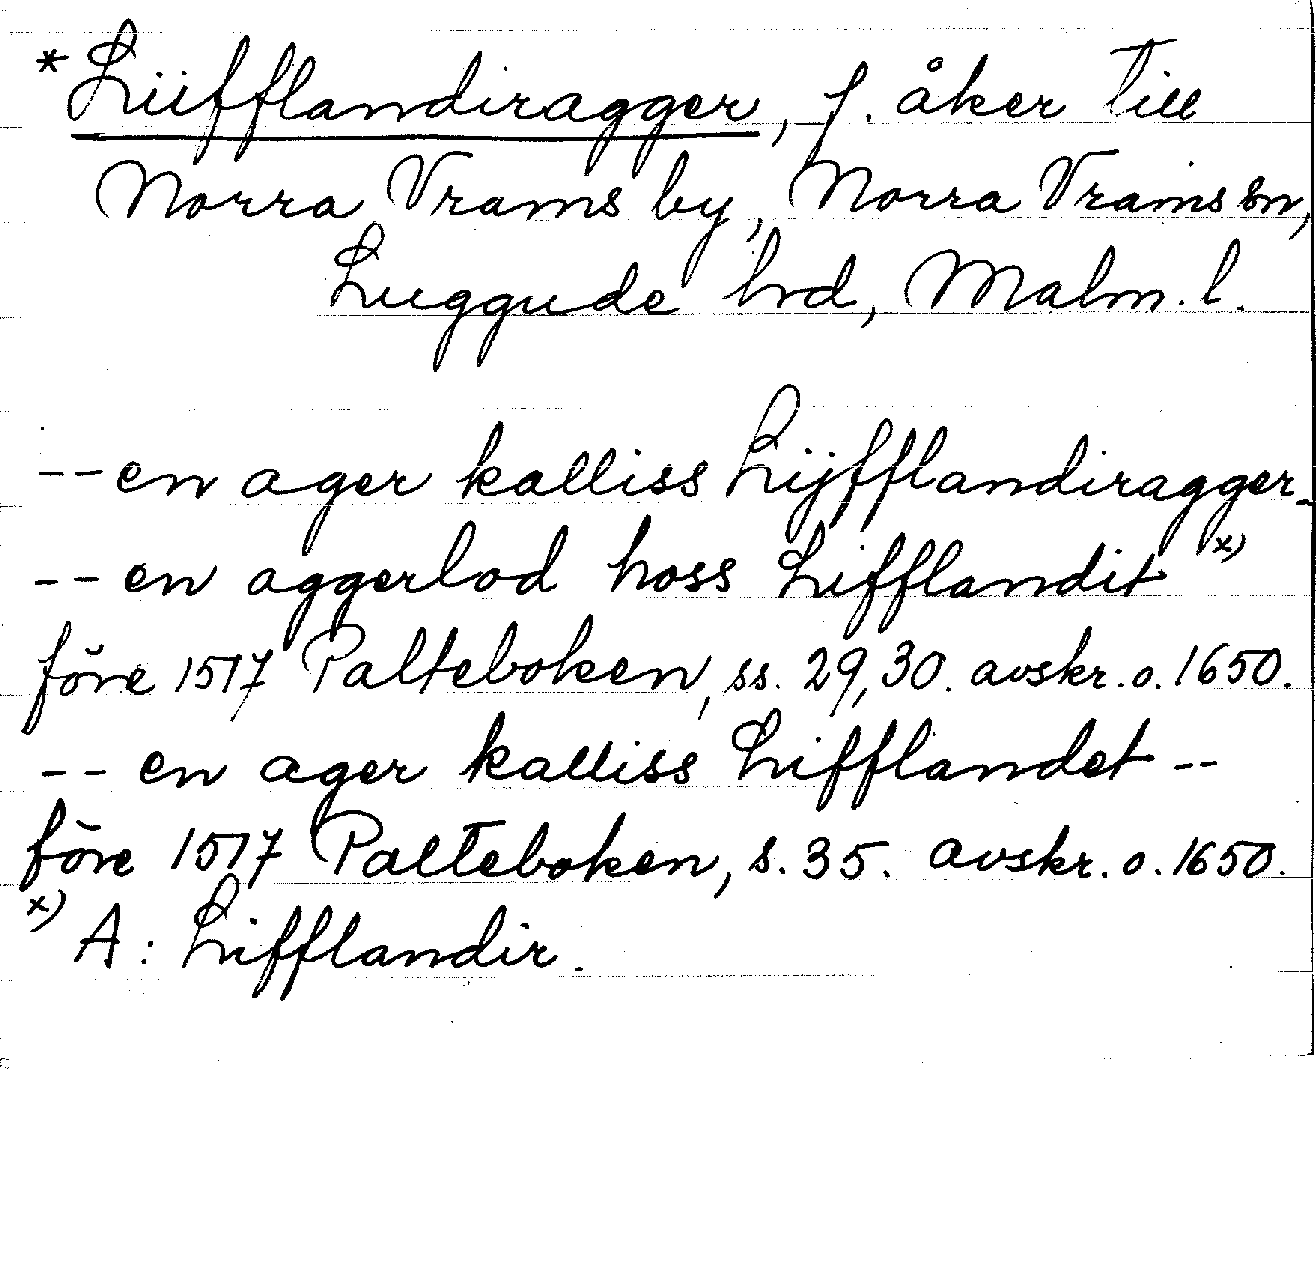 *Liifflandiragger, f. åker till
Norra Vrams by, Norra Vrams sn,
Luggude hrd, Malm. l.
-- en ager kalliss Lijfflandiragger-
-- en aggerlod hoss Lifflandit x)
före 1517 Palteboken, ss. 29, 30. avskr. o. 1650.
-- en ager kalliss Lifflandet --
före 1517 Palteboken, s. 35. avskr. o. 1650.
x) A: Lifflandir.